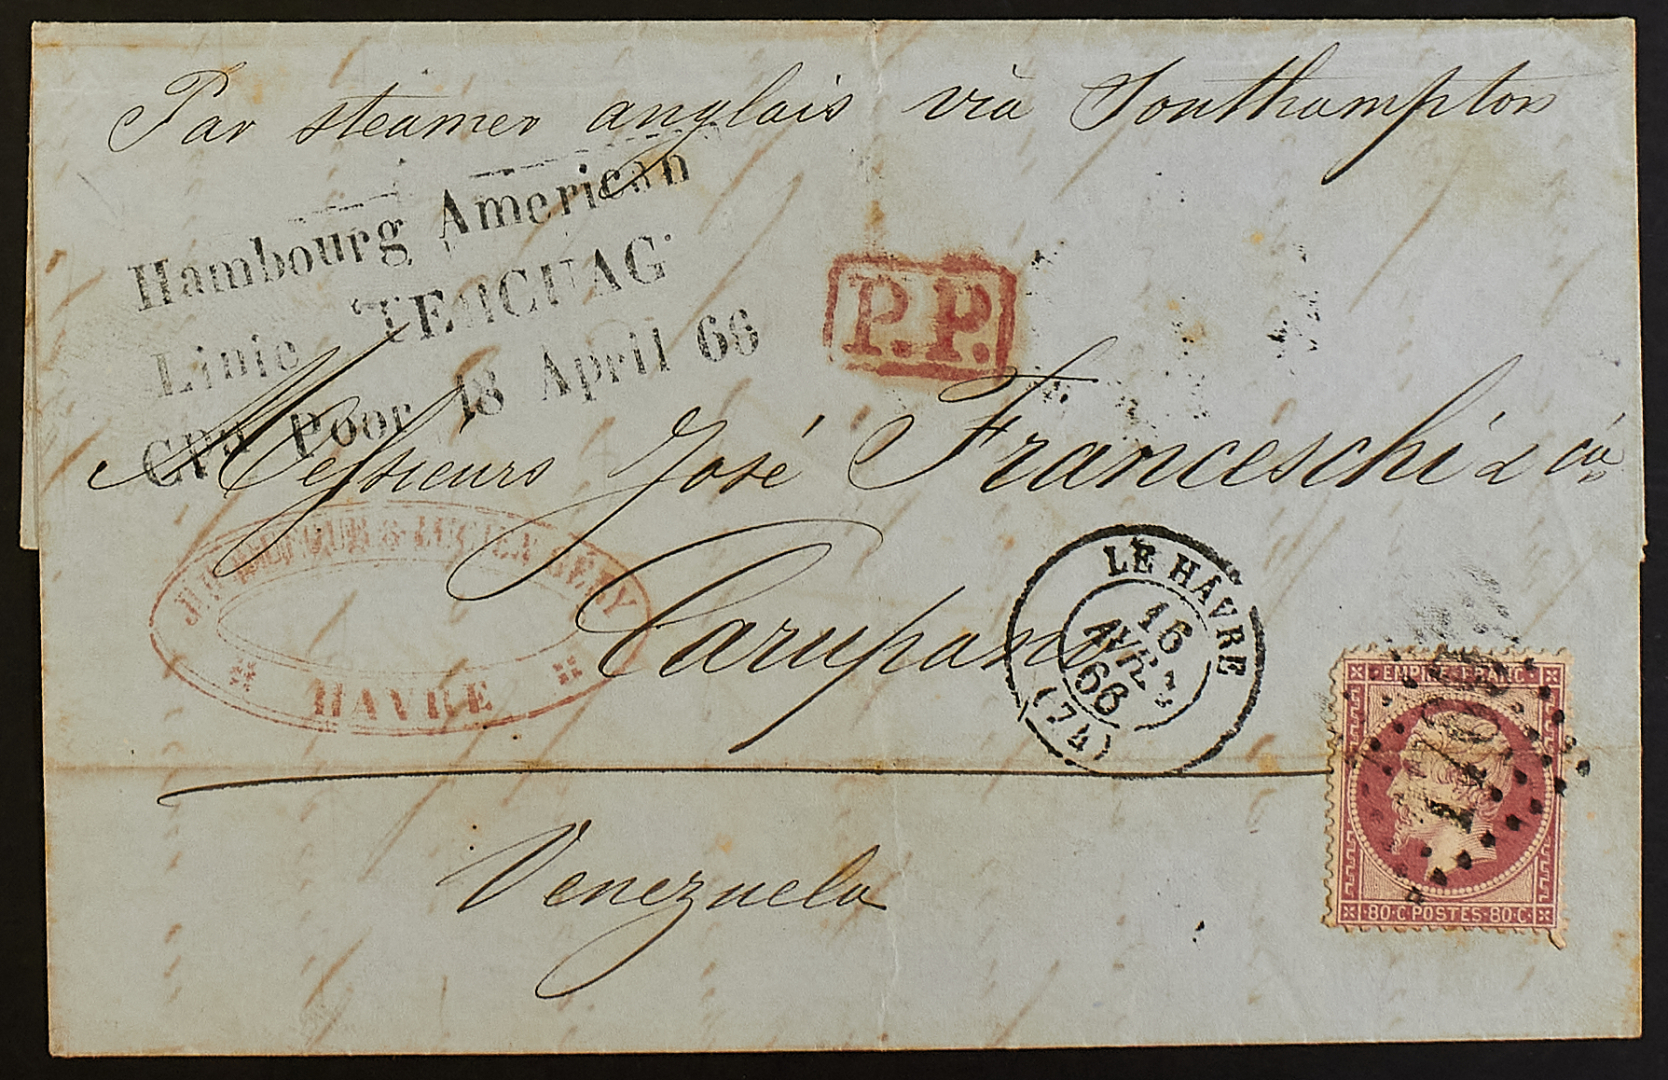 Par steamer anglais via Southampton
Hambourg American
Linie TEUCUAG
Cpn Poor 18 April 66
P.P.
Messieurs José Franceschi & Cia
HAVRE
Carupano
LE HÂVRE
16
AVRIL
66
(74)
EMPIRE FRANC
80·C·POSTES·80·C·
Venezuela